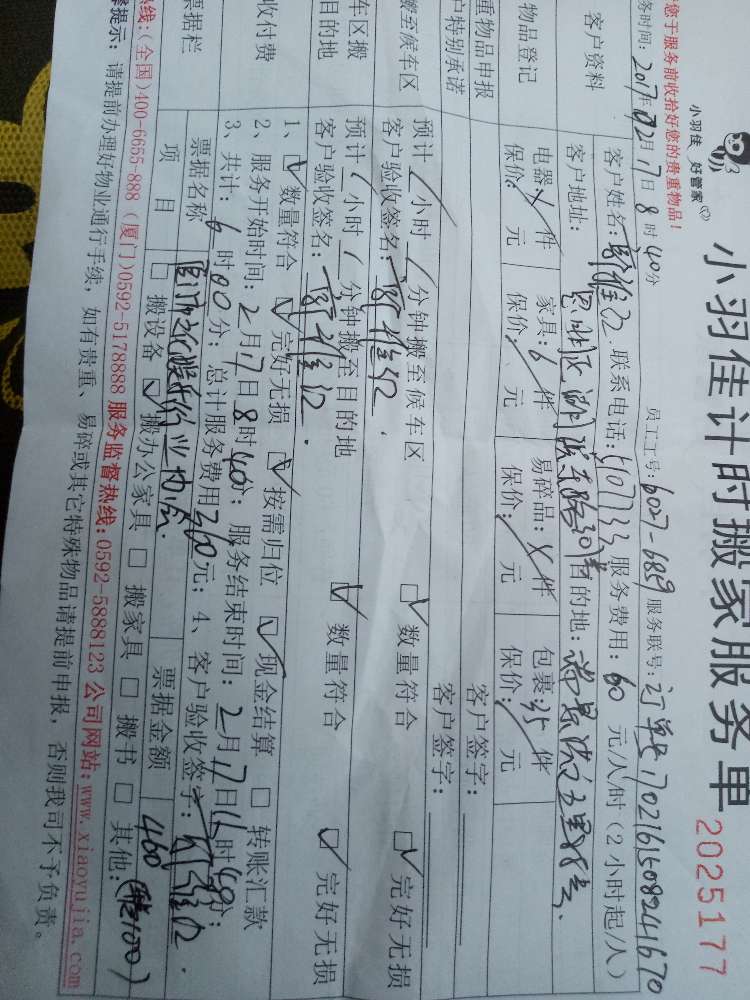 小羽佳 好管家
小羽佳计时搬家服务单
2025177
您于服务前收拾好您的贵重物品!
员工工号: 6027-6859 服务联号: 订单号1702161508241670
务时间: 2017年02月17日8时40分
客户资料
客户姓名: 联系电话: 5107733 服务费用: 60 元/人/时 (2小时起/人)
客户地址: 目的地:
物品登记
电器: 件 家具: 6 件 易碎品: 件 包裹: 35 件
保价: 元 保价: 元 保价: 元 保价: 元
重物品申报
客户签字:
户特别承诺
客户签字:
搬至候车区
预计 小时 分钟搬至候车区 ☑ 数量符合 ☑ 完好无损
客户验收签名:
车区搬
目的地
预计 小时 分钟搬至目的地 ☑ 数量符合 ☑ 完好无损
客户验收签名:
收付费
1、☑ 数量符合 ☑ 完好无损 ☑ 按需归位 ☑ 现金结算 □ 转账汇款
2、服务开始时间: 2月17日8时40分; 服务结束时间: 2月17日14时40分;
3、共计: 6时00分; 总计服务费用360元; 4、客户验收签字:
票据栏
票据名称 票据金额 460
项目 □ 搬设备 ☑ 搬办公家具 □ 搬家具 □ 搬书 □ 其他:
热线:(全国)400-6655-888 (厦门)0592-5178888 服务监督热线:0592-5888123 公司网站:www.xiaoyujia.com
提示: 请提前办理好物业通行手续, 如有贵重、易碎或其它特殊物品请提前申报, 否则我司不予负责。